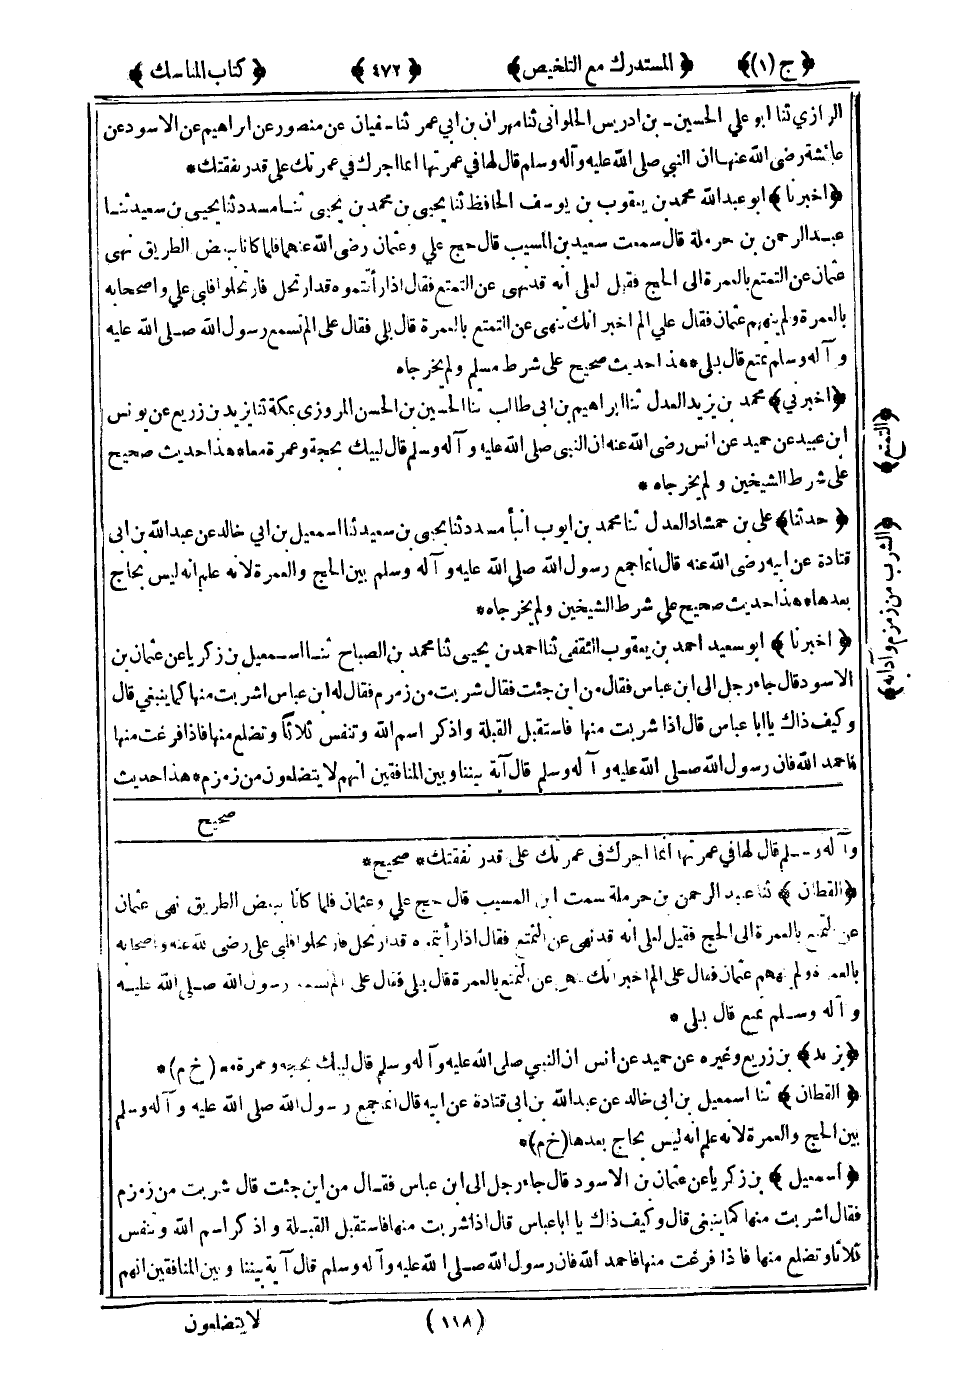 ﴿ ج (١) ﴾ ﴿ المستدرك مع التلخيص ﴾ ﴿ ٤٧٢ ﴾ ﴿ كتاب المناسك ﴾
الرازي ثنا ابو علي الحسين بن ادريس الحلوانى ثنا مهران بن ابي عمر ثنا سفيان عن منصور عن ابراهيم عن الاسود عن
عائشة رضى الله عنها ان النبي صلى الله عليه وآله وسلم قال لها في عمرتها انما اجرك في عمرتك على قدر نفقتك *
﴿ اخبرنا ﴾ ابو عبدالله محمد بن يعقوب بن يوسف الحافظ ثنا يحيى بن محمد بن يحيى ثنا مسدد ثنا يحيى بن سعيد ثنا
عبدالرحمن بن حرملة قال سمعت سعيد بن المسيب قال حج علي وعثمان رضى الله عنهما فلما كانا ببعض الطريق نهى
عثمان عن التمتع بالعمرة الى الحج فقيل لعلى انه قد نهى عن التمتع فقال اذا رأيتموه قد ارتحل فارتحلوا فلبى علي واصحابه
بالعمرة ولم ينههم عثمان فقال علي الم اخبر انك تنهى عن التمتع بالعمرة قال بلى فقال على الم تسمع رسول الله صلى الله عليه
و آله وسلم تمتع قال بلى * هذا حديث صحيح على شرط مسلم ولم يخرجاه
﴿ اخبرني ﴾ محمد بن يزيد العدل ثنا ابراهيم بن ابى طالب ثنا الحسين بن الحسن المروزى بمكة ثنا يزيد بن زريع عن يونس
ابن عبيد عن حميد عن انس رضى الله عنه ان النبى صلى الله عليه و آله وسلم قال لبيك بحجة وعمرة معا * هذا حديث صحيح
على شرط الشيخين و لم يخرجاه *
﴿ حدثنا ﴾ على بن حمشاد العدل ثنا محمد بن ايوب انبأ مسدد ثنا يحيى بن سعيد ثنا اسمعيل بن ابي خالد عن عبدالله بن ابى
قتادة عن ابيه رضى الله عنه قال انما جمع رسول الله صلى الله عليه و آله وسلم بين الحج والعمرة لانه علم انه ليس بحاج
بعدها * هذا حديث صحيح على شرط الشيخين ولم يخرجاه *
﴿ اخبرنا ﴾ ابو سعيد احمد بن يعقوب الثقفى ثنا احمد بن يحيى ثنا محمد بن الصباح ثنا اسمعيل بن زكريا عن عثمان بن
الاسود قال جاء رجل الى ابن عباس فقال من اين جئت فقال شربت من زمزم فقال له ابن عباس اشربت منها كما ينبغي قال
و كيف ذاك يا ابا عباس قال اذا شربت منها فاستقبل القبلة واذكر اسم الله وتنفس ثلاثا وتضلع منها فاذا فرغت منها
فاحمد الله فان رسول الله صلى الله عليه و آله وسلم قال آية بيننا وبين المنافقين انهم لا يتضلعون من زمزم * هذا حديث
صحيح
﴿ التمتع ﴾
﴿ الشرب من زمزم وآدابه ﴾
وآله وسلم قال لها في عمرتها انما اجرك فى عمرتك على قدر نفقتك * صحيح *
﴿ القطان ﴾ ثنا عبد الرحمن بن حرملة سمعت ابن المسيب قال حج علي وعثمان فلما كانا ببعض الطريق نهى عثمان
عن التمتع بالعمرة الى الحج فقيل لعلى انه قد نهى عن التمتع فقال اذا رأيتموه قد ارتحل فارتحلوا فلبى على رضى الله عنه واصحابه
بالعمرة ولم ينههم عثمان فقال على الم اخبر انك تنهى عن التمتع بالعمرة قال بلى فقال على الم تسمع رسول الله صلى الله عليه
و آله وسلم تمتع قال بلى *
﴿ يزيد ﴾ بن زريع وغيره عن حميد عن انس ان النبي صلى الله عليه و آله وسلم قال لبيك بحجة وعمرة ** ( خ م ) *
﴿ القطان ﴾ ثنا اسمعيل بن ابى خالد عن عبدالله بن ابى قتادة عن ابيه قال انما جمع رسول الله صلى الله عليه و آله وسلم
بين الحج والعمرة لانه علم انه ليس بحاج بعدها (خ م) *
﴿ اسمعيل ﴾ بن زكريا عن عثمان بن الاسود قال جاء رجل الى ابن عباس فقال من اين جئت قال شربت من زمزم
فقال اشربت منها كما ينبغى قال وكيف ذاك يا ابا عباس قال اذا شربت منها فاستقبل القبلة و اذكر اسم الله وتنفس
ثلاثا وتضلع منها فاذا فرغت منها فاحمد الله فان رسول الله صلى الله عليه وآله وسلم قال آية بيننا و بين المنافقين انهم
( ١١٨ ) لا يتضلعون